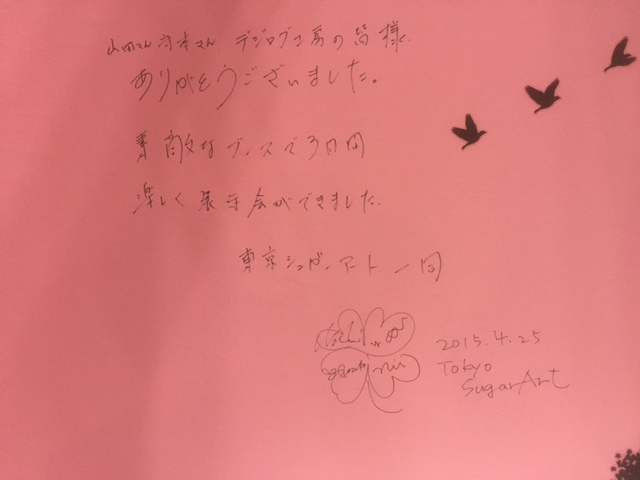 山田さん 守本さん デジログ工房の皆様
ありがとうございました。
素敵なブースで3日間
楽しく展示会ができました.
東京シュガーアート一同
2015.4.25
Tokyo
SugarArt